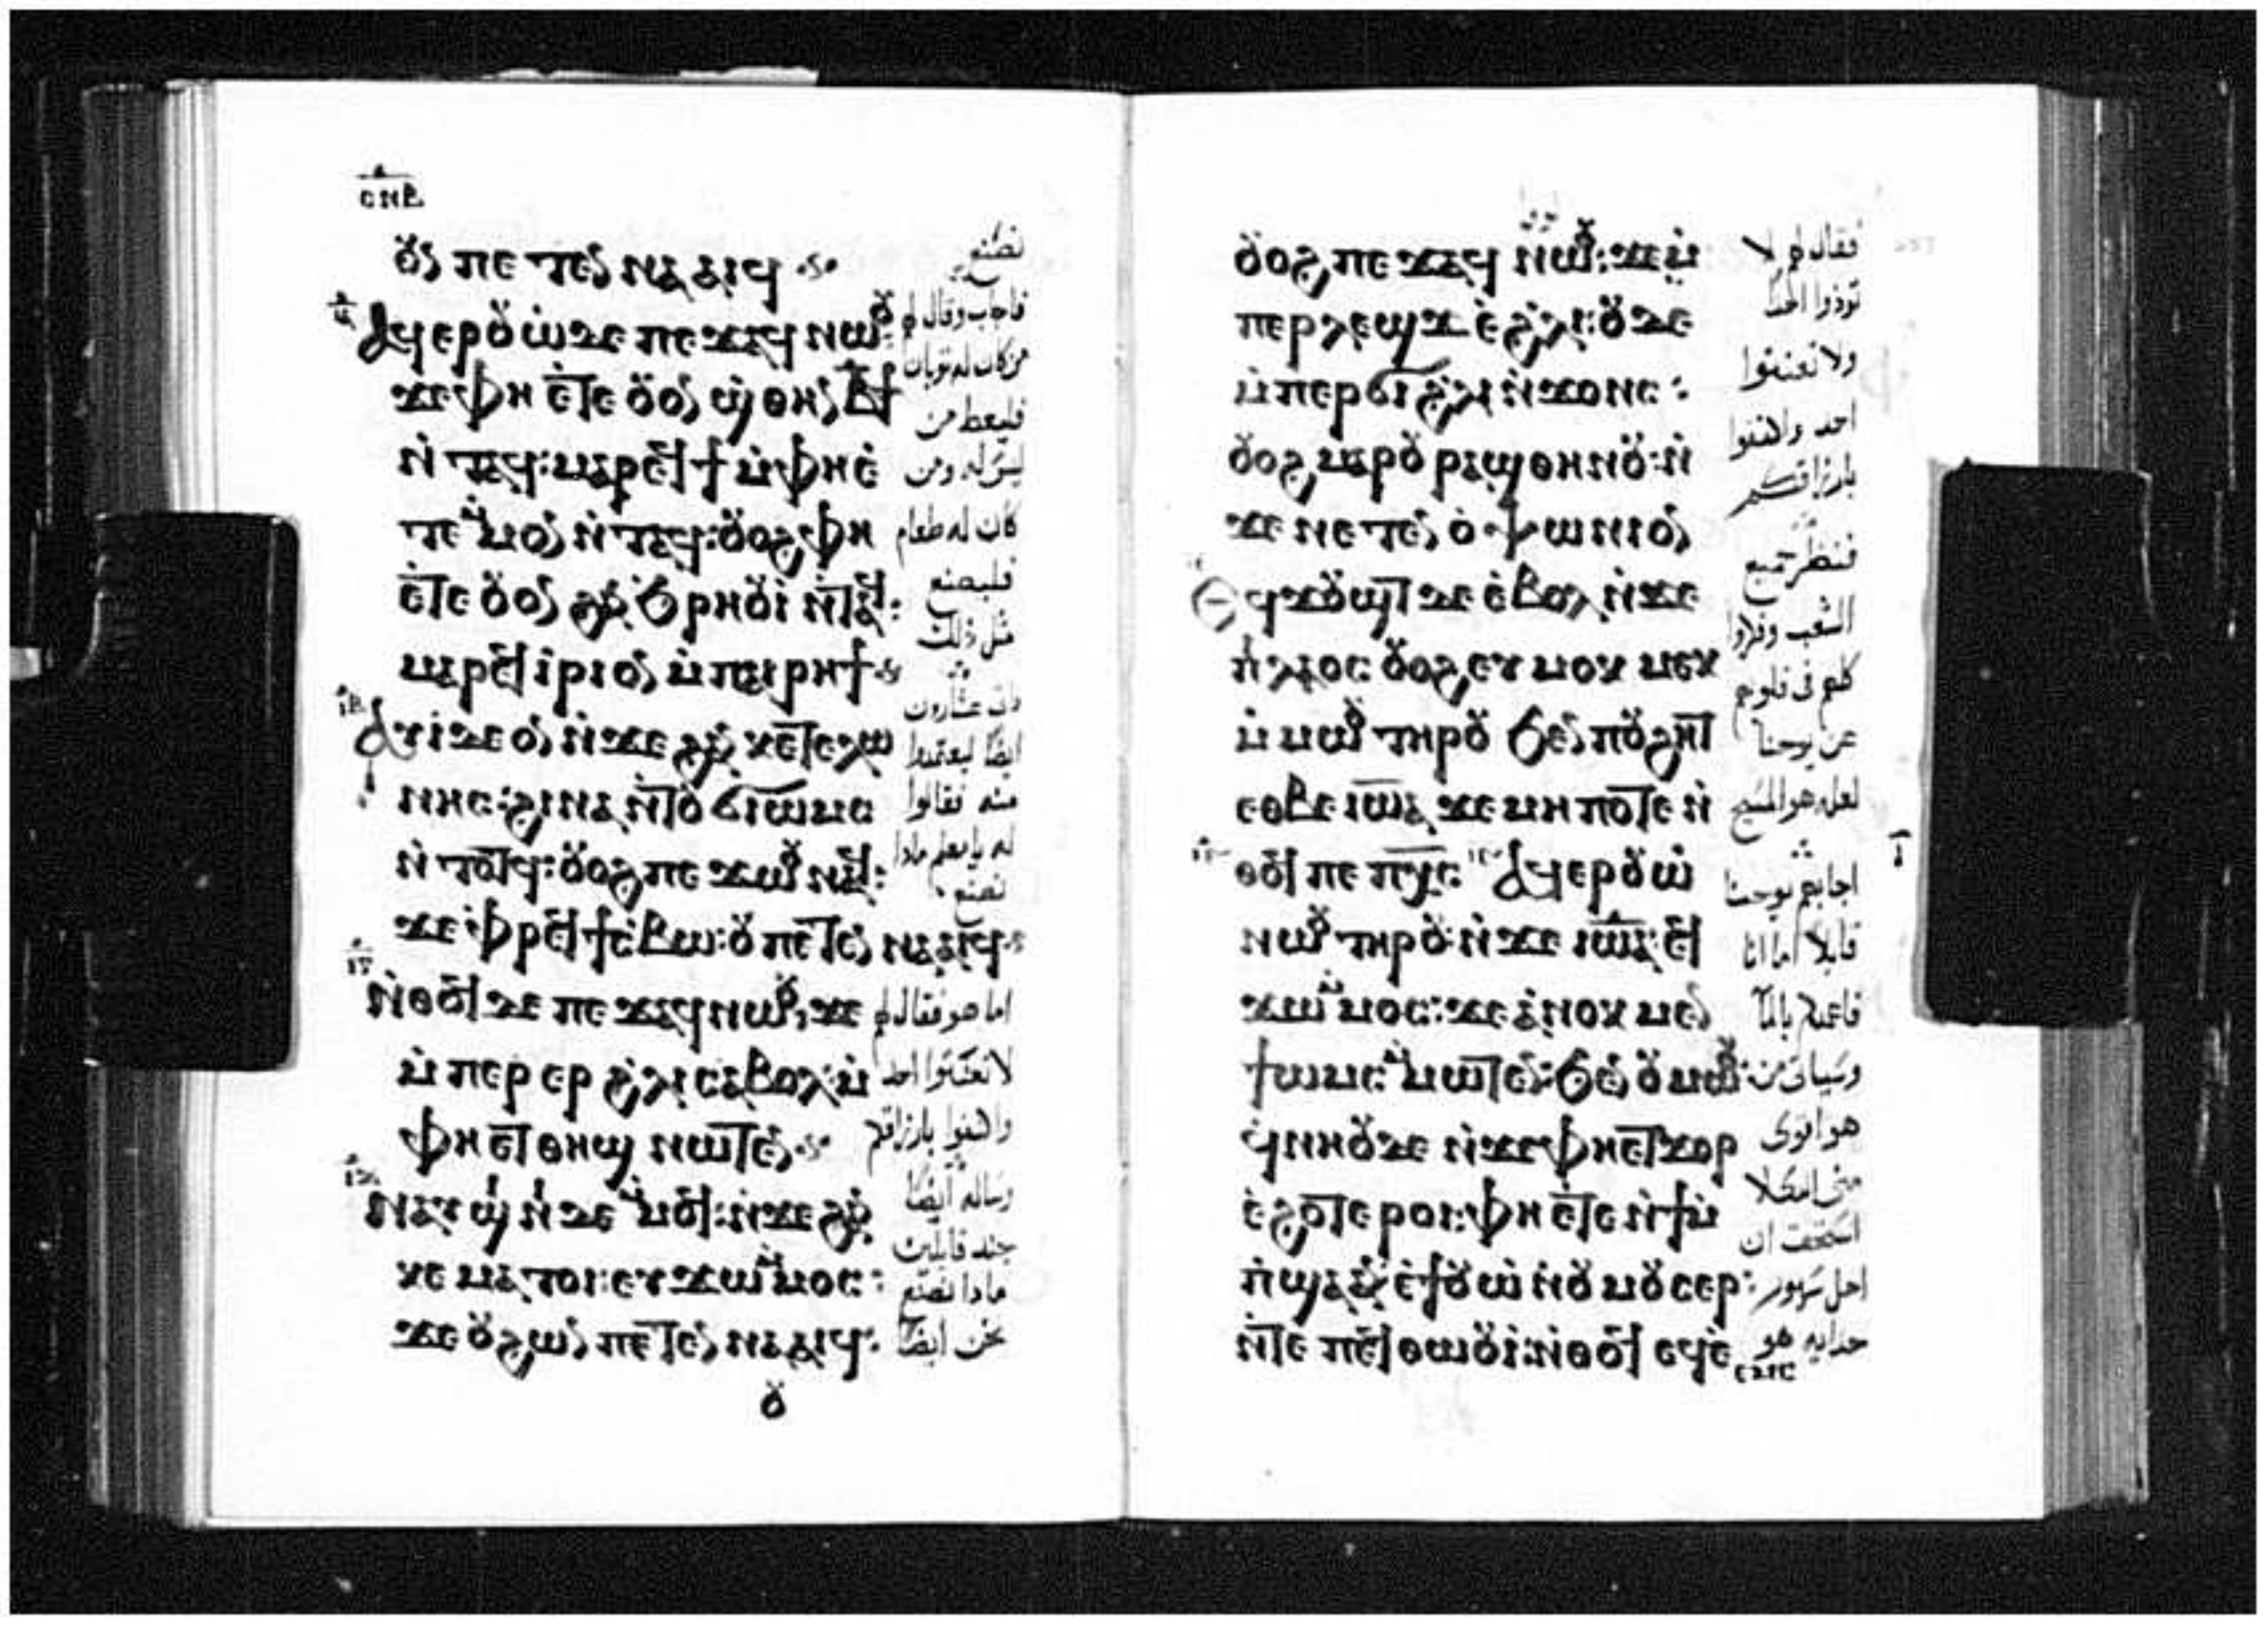 ⲥⲛⲃ
ⲟⲩⲛ ⲡⲉ ⲧⲉⲛⲛⲁⲁⲓϥ
ⲁϥⲉⲣⲟⲩⲱ̀ ⲇⲉ ⲡⲉϫⲁϥ ⲛⲱⲟⲩ:
ϫⲉ ⲫⲏ ⲉ̀ⲧⲉ ⲟⲩⲟⲛ ϣⲑⲏⲛ ⲃϯ
ⲛ̀ⲧⲁϥ: ⲙⲁⲣⲉϥϯ ⲙ̀ⲫⲏ ⲉ̀
ⲧⲉ ⲙ̀ⲙⲟⲛ ⲛ̀ⲧⲁϥ: ⲟⲩⲟϩ ⲫⲏ
ⲉ̀ⲧⲉ ⲟⲩⲟⲛ ϩⲁⲛϧⲣⲏⲟⲩⲓ̀ ⲛ̀ⲧⲁϥ:
ⲙⲁⲣⲉϥⲓ̀ⲣⲓ ⲟⲛ ⲙ̀ⲡⲁⲓⲣⲏϯ
ⲓⲃ ⲁⲩⲓ̀ ⲇⲉ ⲟⲛ ⲛ̀ϫⲉ ϩⲁⲛⲕⲉⲧⲉⲗⲱ
ⲛⲏⲥ: ϩⲓⲛⲁ ⲛ̀ⲧⲟⲩϭⲓⲱⲙⲥ
ⲛ̀ⲧⲟⲧϥ: ⲟⲩⲟϩ ⲡⲉϫⲱⲟⲩ ⲛⲁϥ:
ϫⲉ ⲫ̀ⲣⲉϥϯⲥ̀ⲃⲱ: ⲟⲩ ⲡⲉⲧⲉⲛⲛⲁⲁⲓϥ
ⲓⲅ ⲛ̀ⲑⲟϥ ⲇⲉ ⲡⲉϫⲁϥ ⲛⲱⲟⲩ: ϫⲉ
ⲙ̀ⲡⲉⲣⲉⲣ ϩ̀ⲗⲓ ⲥⲁⲃⲟⲗ: ⲙ̀
ⲫⲏ ⲉⲧⲑⲏϣ ⲛⲱⲧⲉⲛ
ⲓⲇ ⲛⲁⲩϣⲓⲛⲓ ⲇⲉ ⲙ̀ⲙⲟϥ: ⲛ̀ϫⲉ ϩⲁⲛ
ⲕⲉⲙⲁⲧⲟⲓ: ⲉⲩϫⲱ ⲙ̀ⲙⲟⲥ:
ϫⲉ ⲟⲩ ϩⲱⲛ ⲡⲉⲧⲉⲛⲛⲁⲁⲓϥ:
ⲟⲩ
نصنع
فاجاب وقال لهم
من كان له ثوبان
فليعط من
ليس له ومن
كان له طعام
فليصنع
مثل ذلك
عشارون
ايضا ليعتمدوا
منه فقالوا
له يا معلم ماذا
نصنع
اما هو فقال لهم
واله ايضا
جند قايلين
ماذا نصنع
نحن ايضا
ⲟⲩⲟϩ ⲡⲉϫⲁϥ ⲛⲱⲟⲩ: ϫⲉ ⲙ̀
ⲡⲉⲣⲗⲉϣϫ ⲉ̀ϩ̀ⲗⲓ: ⲟⲩⲇⲉ
ⲙ̀ⲡⲉⲣϭⲓ ϩ̀ⲗⲓ ⲛ̀ϫⲟⲛⲥ:
ⲟⲩⲟϩ ⲙⲁⲣⲟⲩⲣⲁϣⲑⲏⲛⲟⲩ: ⲛ̀
ϫⲉ ⲛⲉⲧⲉⲛⲟ̀ⲯⲱⲛⲓⲟⲛ
ϥϫⲟⲩϣⲧ ⲇⲉ ⲉ̀ⲃⲟⲗ ⲛ̀ϫⲉ
ⲡ̀ⲗⲁⲟⲥ ⲟⲩⲟϩ ⲉⲩⲙⲟⲕⲙⲉⲕ
ⲙ̀ⲙⲱⲟⲩ ⲧⲏⲣⲟⲩ ϧⲉⲛ ⲡⲟⲩϩⲏⲧ
ⲉⲑⲃⲉ ⲓⲱⲁ: ϫⲉ ⲙⲏⲡⲟⲧⲉ ⲛ̀
ⲑⲟϥ ⲡⲉ ⲡⲭⲥ: ⲁϥⲉⲣⲟⲩⲱ̀
ⲛⲱⲟⲩ ⲧⲏⲣⲟⲩ: ⲛ̀ϫⲉ ⲓⲱⲁ: ⲉϥ
ϫⲱ ⲙ̀ⲙⲟⲥ: ϫⲉ ⲁ̀ⲛⲟⲕ ⲙⲉⲛ
ϯⲱⲙⲥ ⲙ̀ⲙⲱⲧⲉⲛ: ϧⲉⲛ ⲟⲩⲙⲱⲟⲩ:
ϥ̀ⲛⲏⲟⲩ ⲇⲉ ⲛ̀ϫⲉ ⲫⲏ ⲉⲧϫⲟⲣ
ⲉ̀ϩⲟⲧⲉ ⲣⲟⲓ: ⲫⲏ ⲉ̀ⲧⲉ ⲛ̀ϯⲙ̀
ⲡ̀ϣⲁ ⲁⲛ ⲉ̀ϯⲟⲩⲱ̀ ⲛ̀ⲟⲩⲙⲟⲩⲥⲉⲣ:
ⲛ̀ⲧⲉ ⲡⲉϥⲑⲱⲟⲩⲓ̀: ⲛ̀ⲑⲟϥ ⲉϥⲉ̀
فقال لهم لا
توذوا احدا
ولا تعنفوا
احد واكتفوا
بارزاقكم
فنظر جميع
الشعب وفكروا
كلهم في قلوبهم
عن يوحنا
لعله هو المسيح
اجابهم يوحنا
قايلا اما انا
فاعمدكم بالما
وسياتي من
هو اقوى
مني الذي لا
استحق ان
احل سيور
حذايه هو